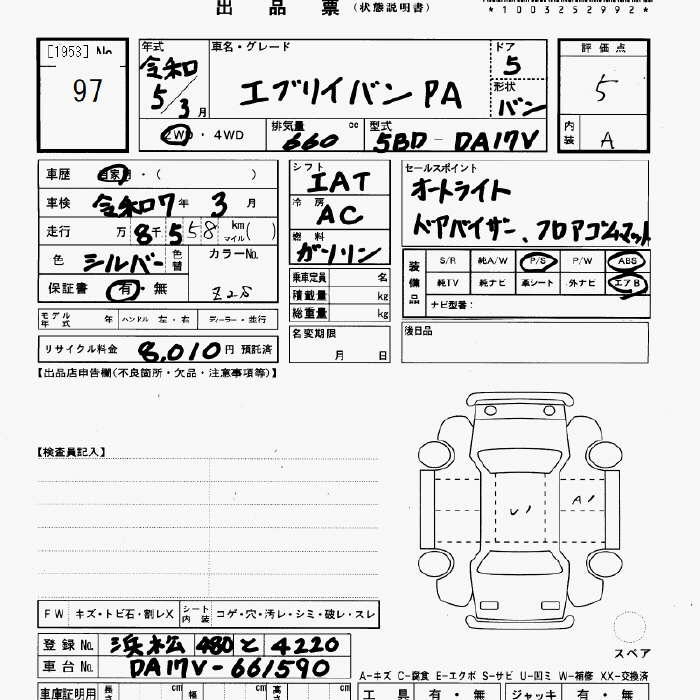 出品票(状態説明書)
*1003252992*
[1953] No
97
年式
令和
5/3月
車名・グレード
エブリイバン PA
ドア
5
形状
バン
2WD・4WD
排気量
660 cc
型式
5BD-DA17V
評価点
5
内装
A
車歴 自家用・( )
車検 令和7年 3月
走行 万8千558 km マイル( )
色 シルバー
色替
カラーNo.
Z2S
保証書 有・無
シフト
IAT
冷房
AC
燃料
ガソリン
乗車定員 名
積載量 kg
総重量 kg
セールスポイント
オートライト
ドアバイザー、フロアゴムマット
装備品
S/R 純A/W P/S P/W ABS
純TV 純ナビ 革シート 外ナビ エアB
ナビ型番:
モデル年式 年 ハンドル 左・右 ディーラー・並行
リサイクル料金 8,010円 預託済
名変期限
月 日
後日品
【出品店申告欄(不良箇所・欠品・注意事項等)】
【検査員記入】
A1
U1
FW キズ・トビ石・割レX シート内装 コゲ・穴・汚レ・シミ・破レ・スレ
スペア
登録No. 浜松 480 と 4220
車台No. DA17V-661590
A-キズ C-腐食 E-エクボ S-サビ U-凹ミ W-補修 XX-交換済
車庫証明用 長さ cm 幅 cm 高さ cm
工具 有・無 ジャッキ 有・無